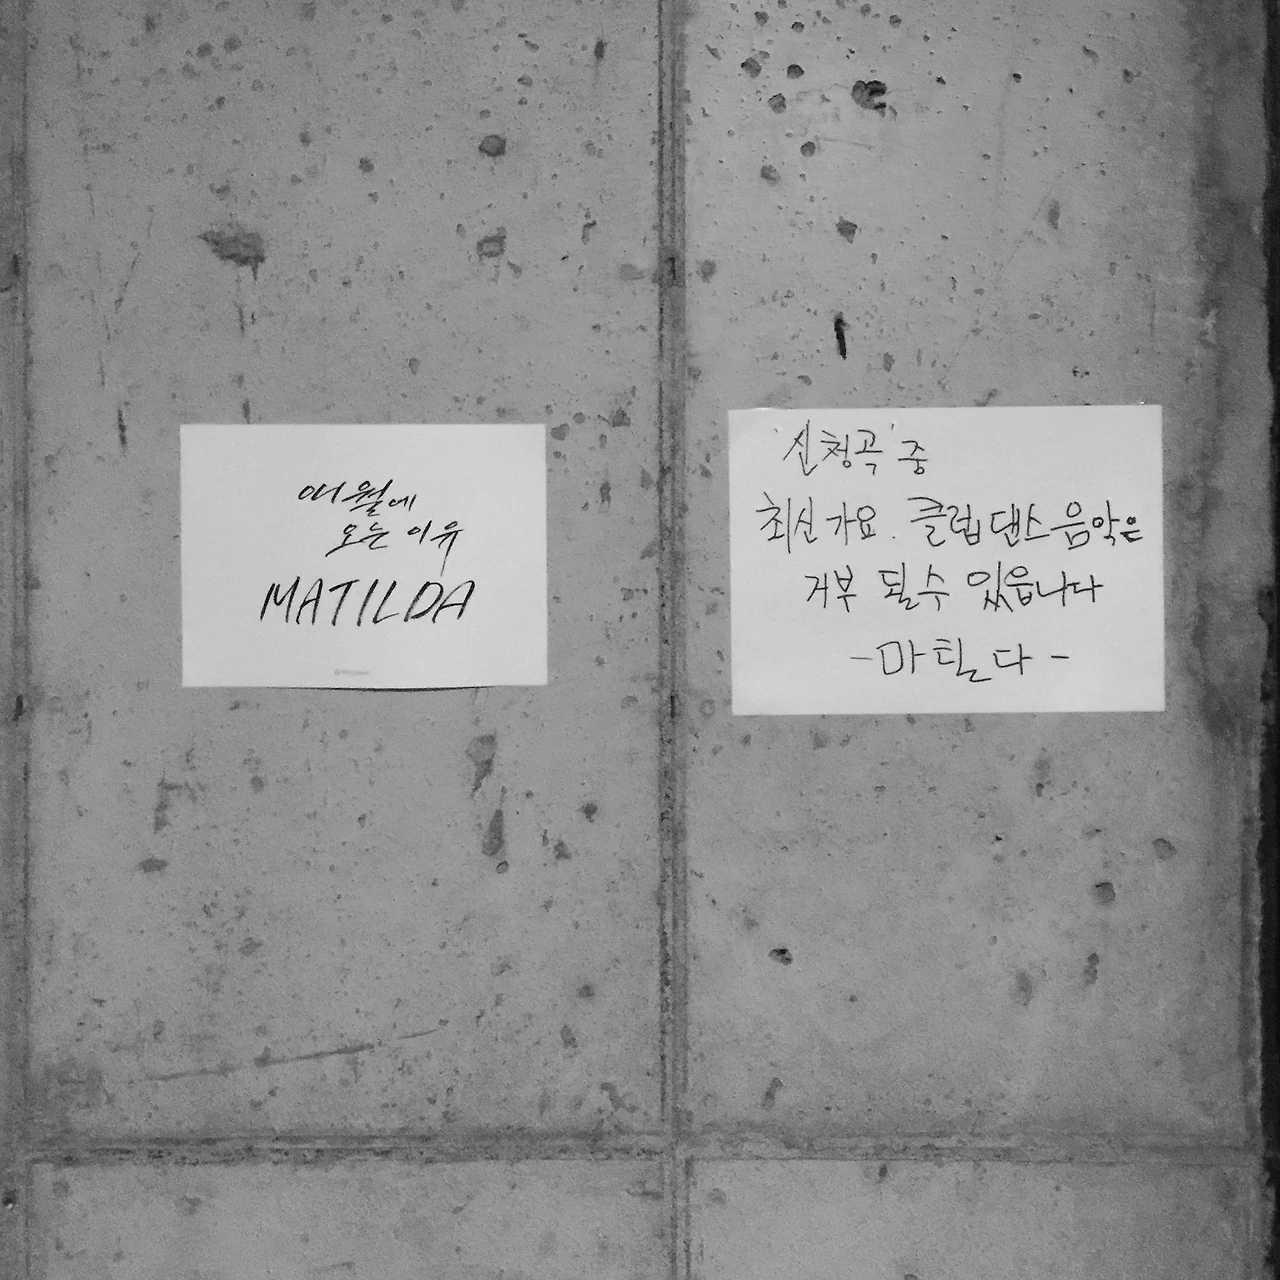 애월에
오는 이유
MATILDA
'신청곡' 중
최신가요. 클럽댄스음악은
거부 될수 있읍니다
-마틸다-